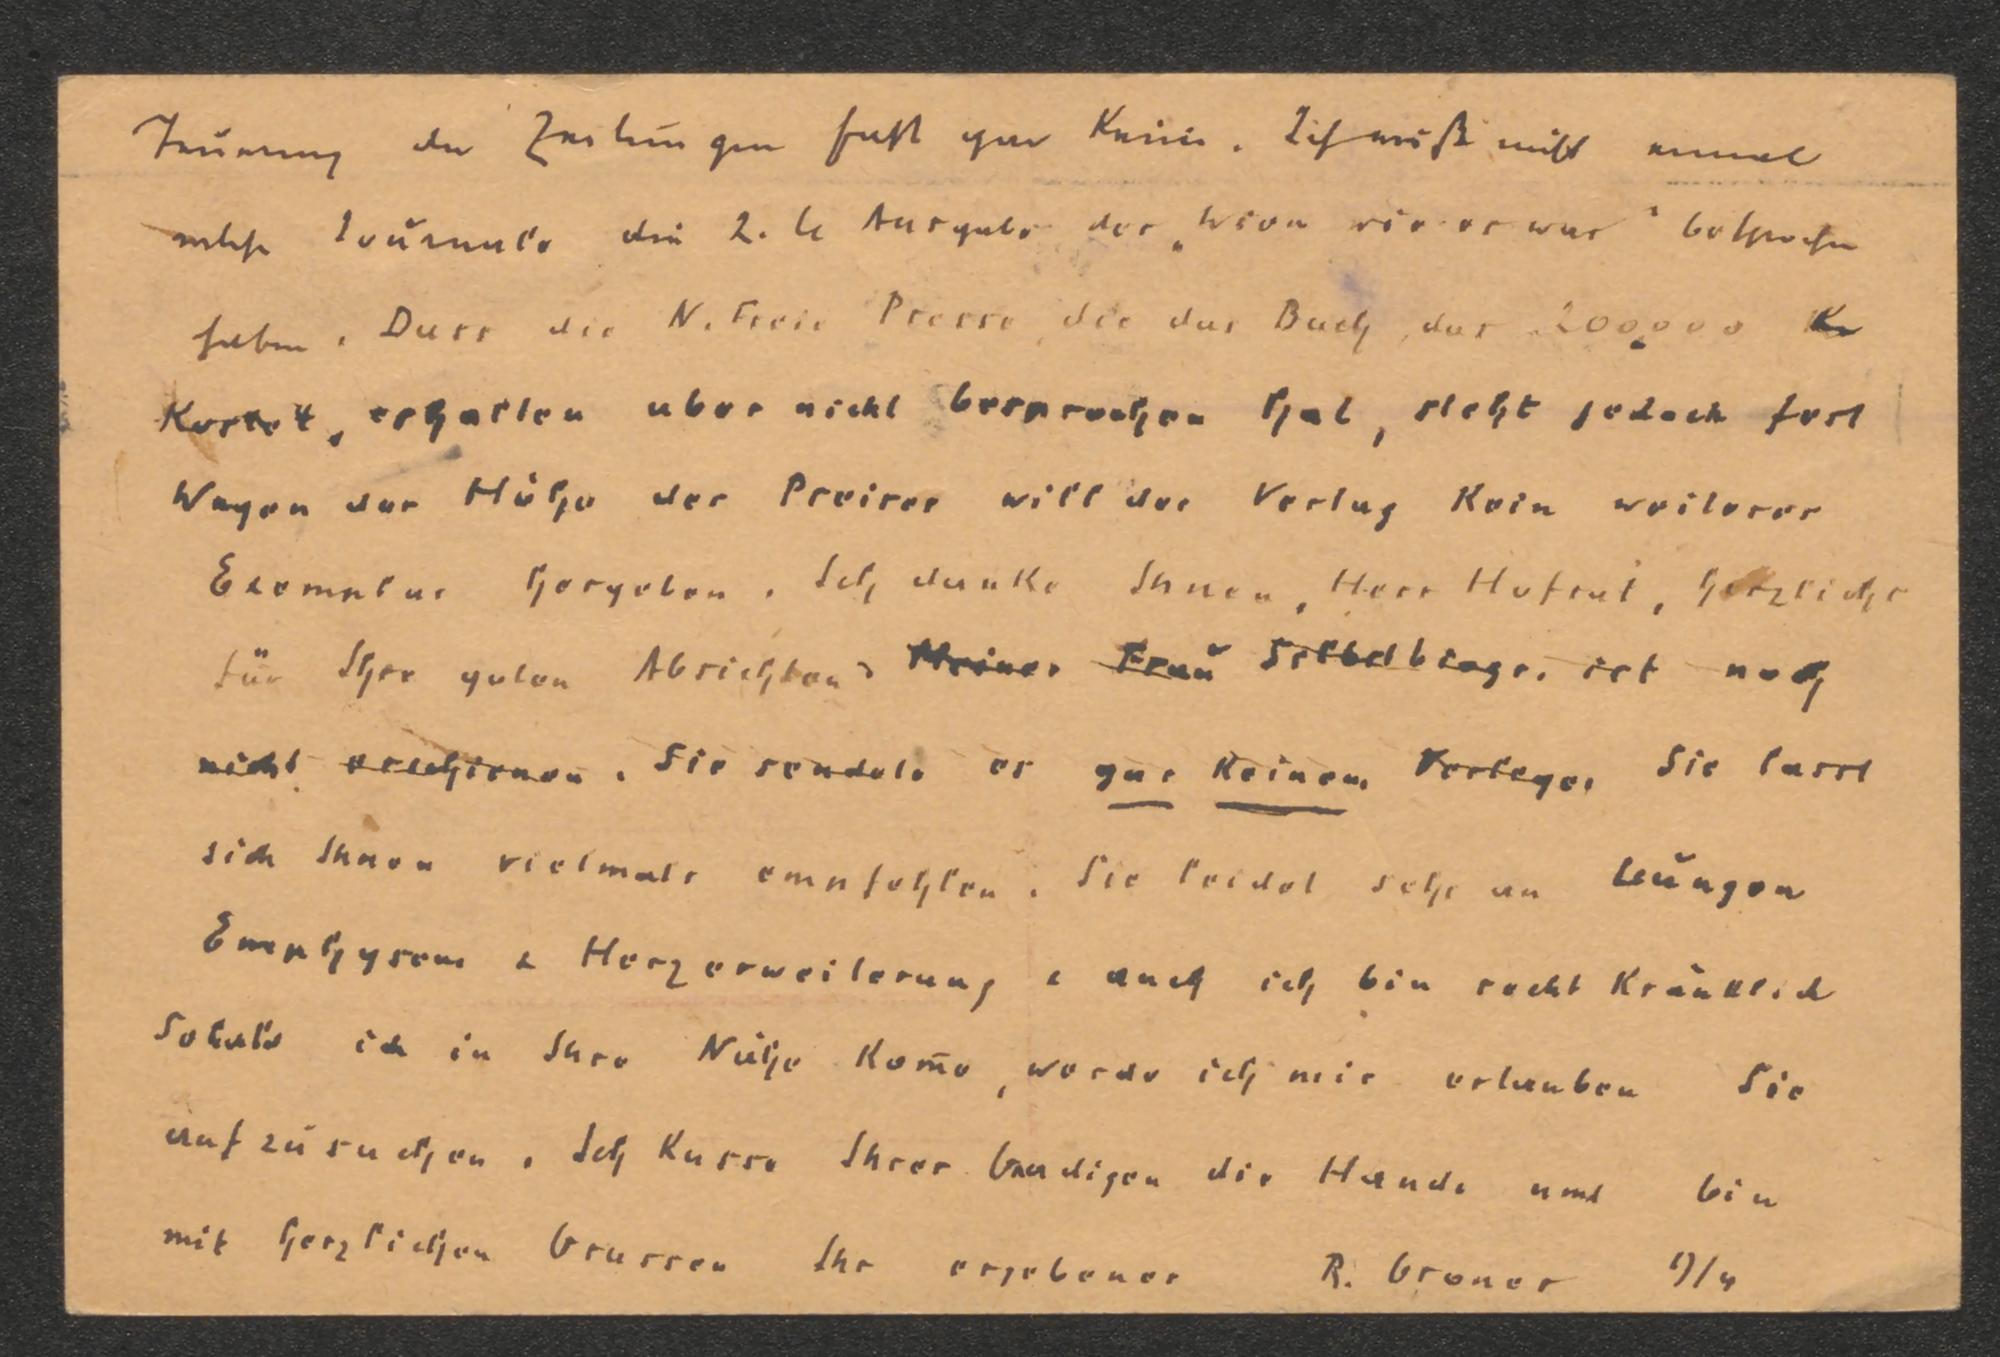 Teuerung der Zeitungen fast gar keine. Ich weiß nicht einmal
welche Journale die 2. te Ausgabe des „Wien wie es war" besprochen
haben. Dass die N. Freie Presse die das Buch, das 200000 Kr
Kostet, erhalten aber nicht besprochen hat, steht jedoch fest
Wegen der Höhe des Preises will der Verlag Kein weiteres
Exemplar hergeben. Ich danke Ihnen, Herr Hofrat, herzlichst
für Ihre guten Absichten Meiner Frau ist noch
nicht erschienen. Sie sendete es gar Keinem Verleger Sie lasst
sich Ihnen vielmals empfehlen. Sie leidet sehr an Lungen
Emphysem & Herzerweiterung & auch ich bin recht Kränklich
Sobald ich in Ihre Nähe Kom̄e, werde ich mir erlauben Sie
aufzusuchen. Ich Kusse Ihrer Gnadigen die Hande und bin
mit herzlichen Grussen Ihr ergebener R. Groner 17/4